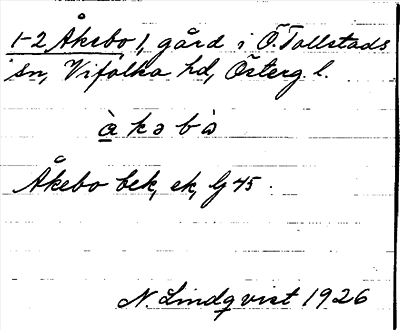 1-2 Åkebo 1, gård i Ö. Tollstads
sn, Vifolka hd, Österg. l.
à k ə b ò
Åkebo bek, ek, G 45.
N. Lindqvist 1926